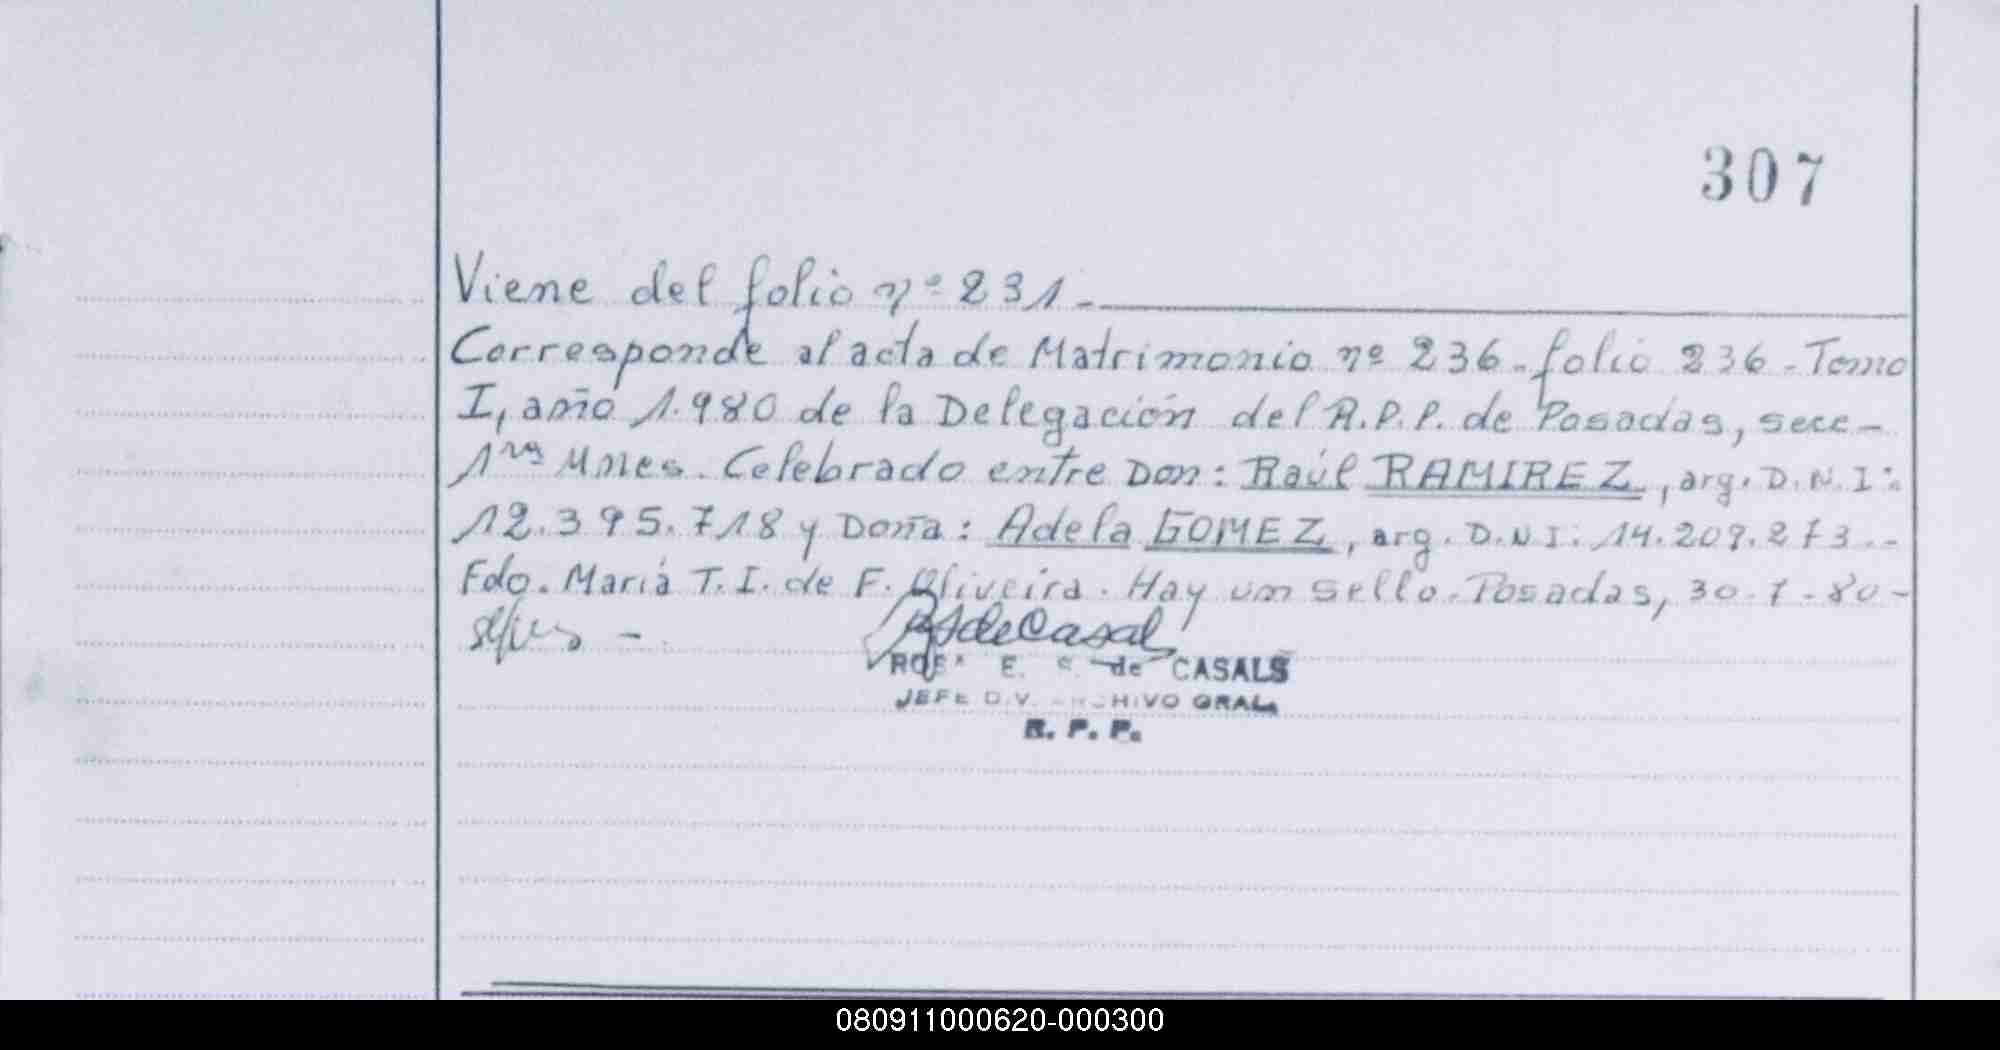 307
Viene del folio nº 231.-
Corresponde al acta de Matrimonio nº 236-folio 236-Tomo
I, año 1.980 de la Delegación del R.P.P. de Posadas, secc-
1ra Mnes. Celebrado entre Don: Raúl RAMIREZ, arg. D.N.I:
12.395.718 y Doña: Adela GOMEZ, arg. D.N.I. 14.209.273.-
Fdo. María T.I. de F. Oliveira. Hay un sello. Posadas, 30-7-80-
de CASALS
JEFE DIV. ARCHIVO GRAL.
R. P. P.
080911000620-000300